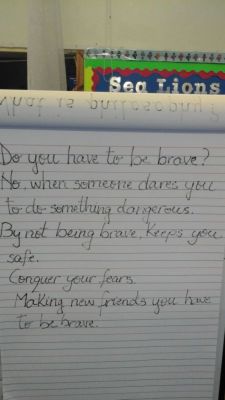 Sea Lions
What is philosophy?
Do you have to be brave?
No, when someone dares you
to do something dangerous.
By not being brave, keeps you
safe.
Conquer your fears.
Making new friends you have
to be brave.